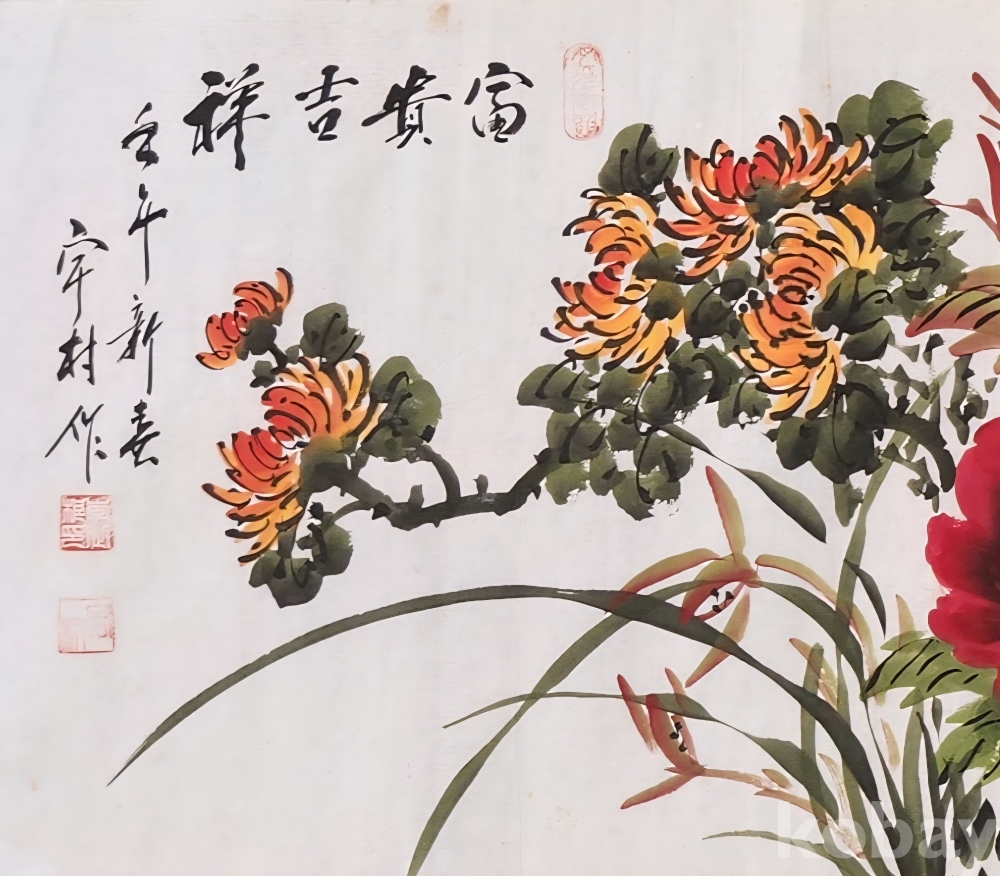 富貴吉祥
壬午新春
宇村作
kobay